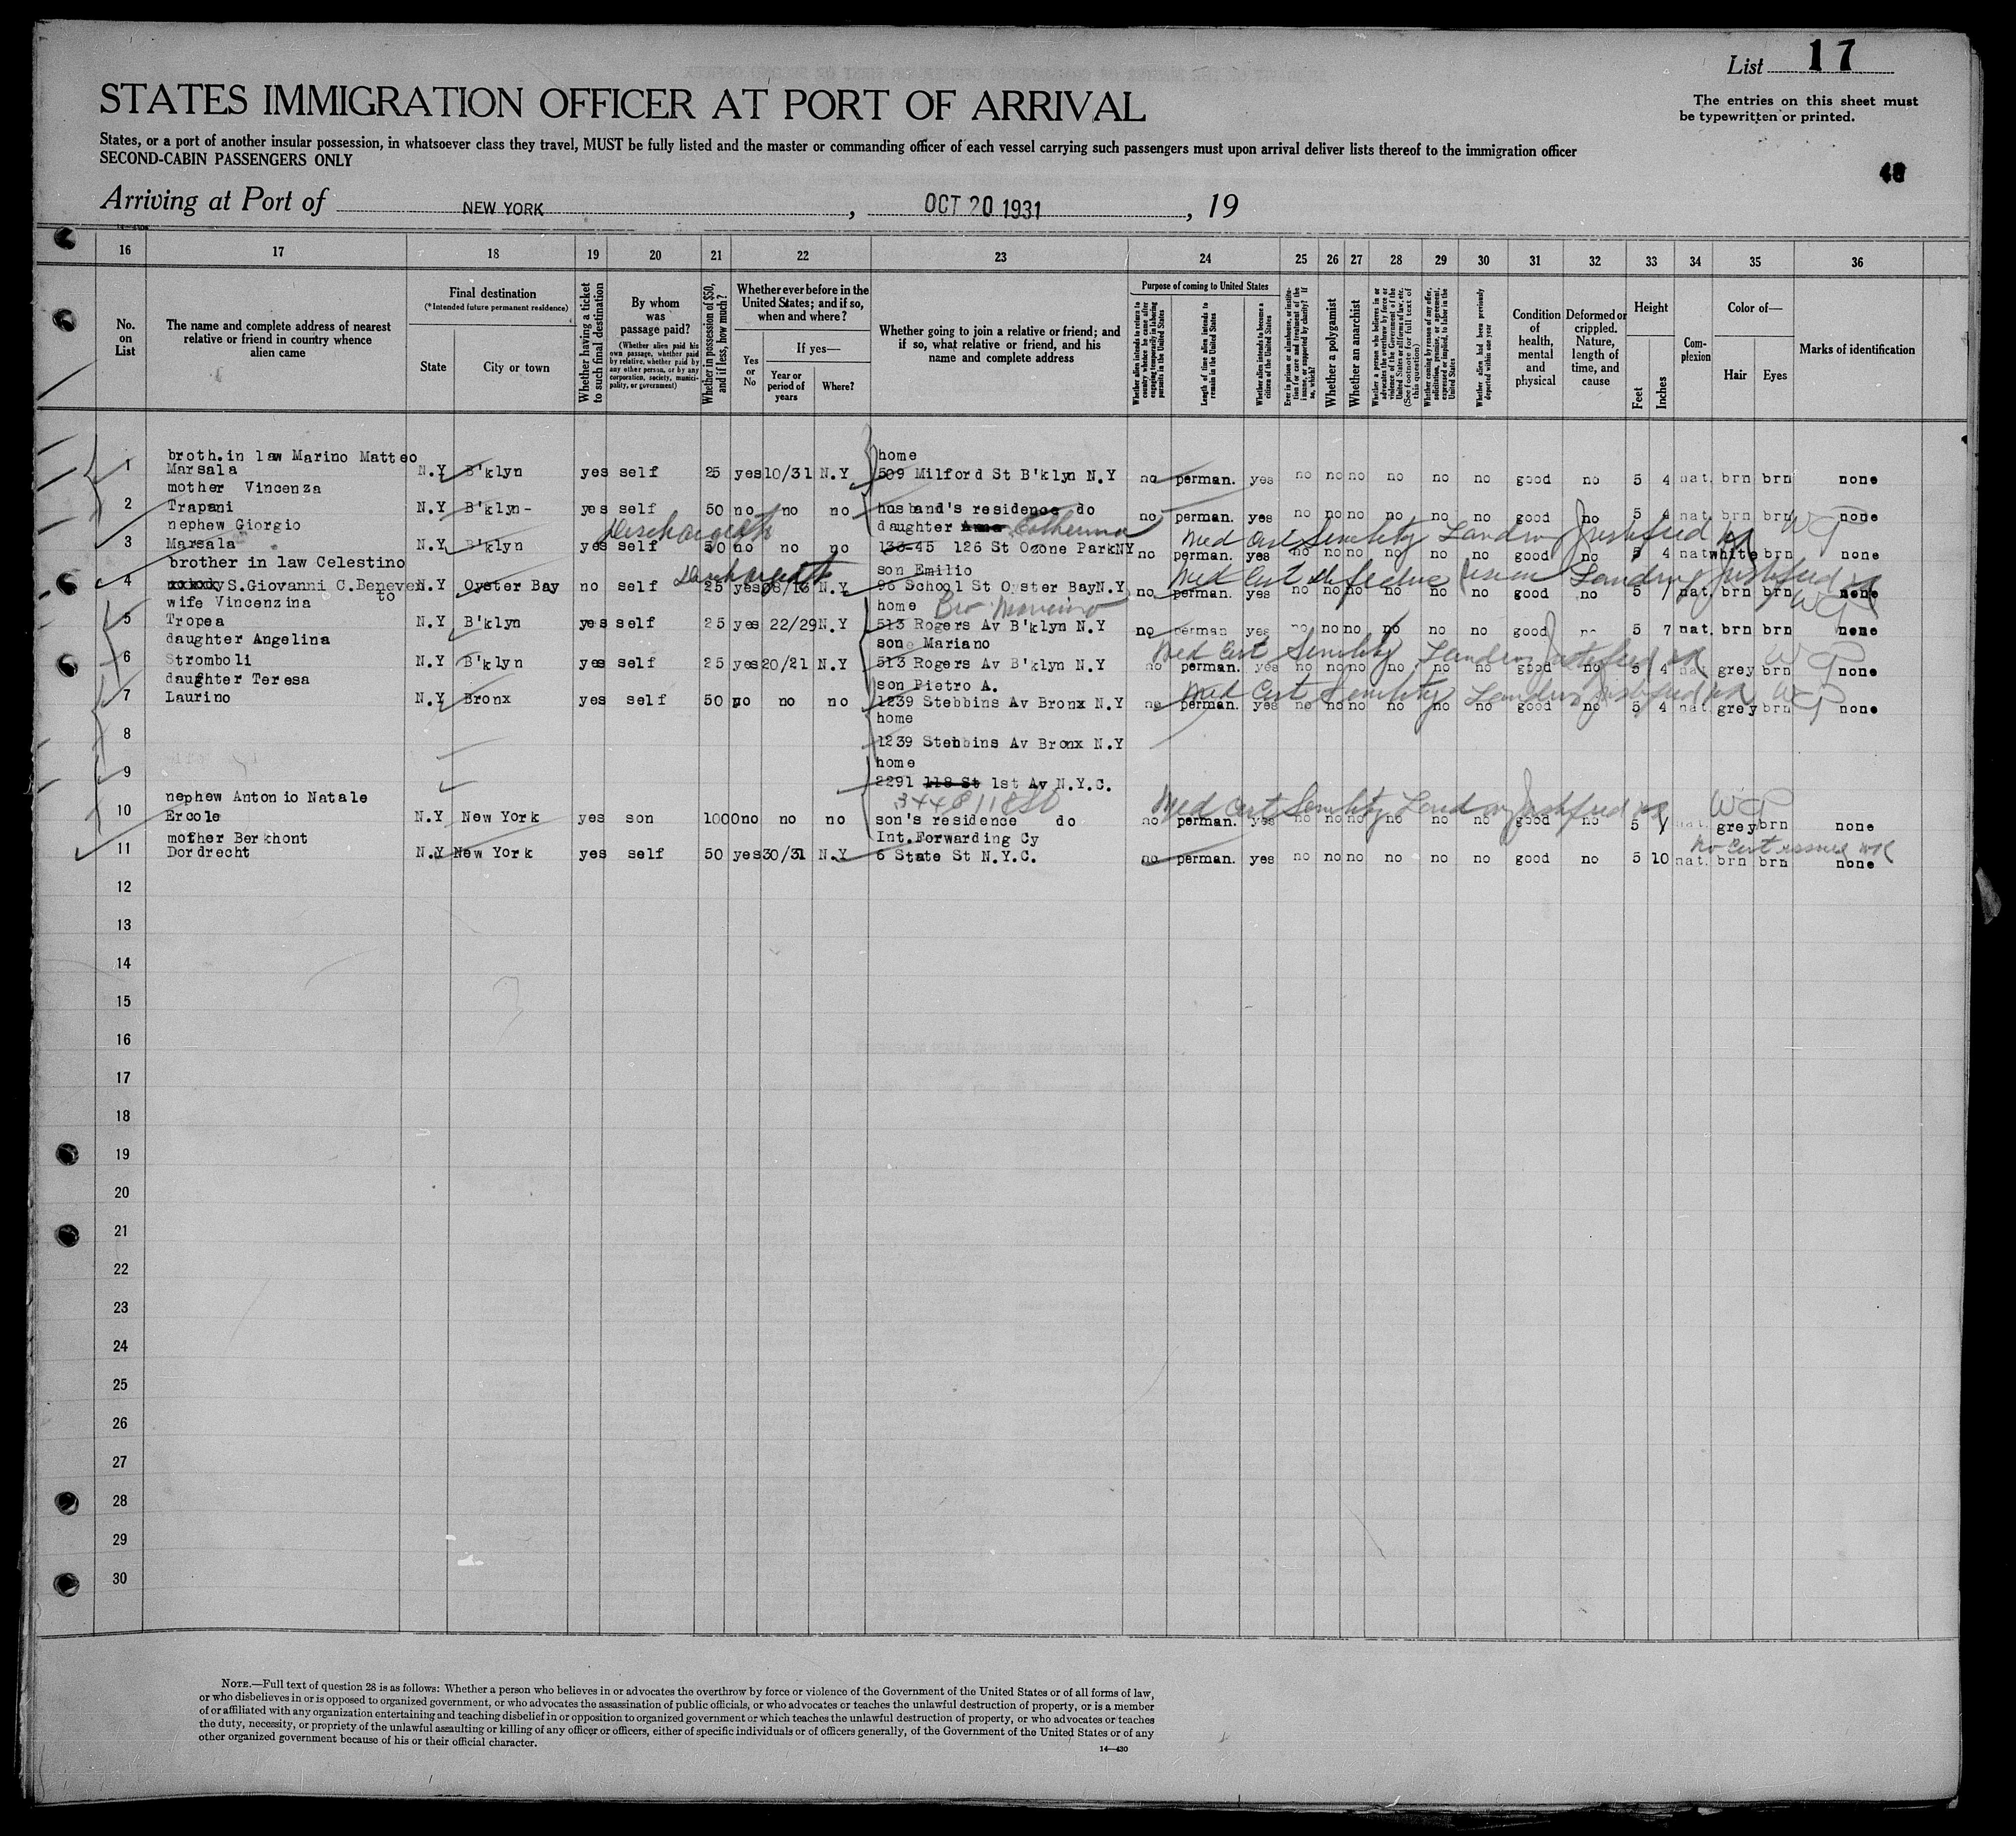 List 17
STATES IMMIGRATION OFFICER AT PORT OF ARRIVAL
The entries on this sheet must
be typewritten or printed.
States, or a port of another insular possession, in whatsoever class they travel, MUST be fully listed and the master or commanding officer of each vessel carrying such passengers must upon arrival deliver lists thereof to the immigration officer
SECOND-CABIN PASSENGERS ONLY
48
Arriving at Port of NEW YORK, OCT 20 1931, 19
16 17 18 19 20 21 22 23 24 25 26 27 28 29 30 31 32 33 34 35 36
No. on List
The name and complete address of nearest relative or friend in country whence alien came
Final destination
(*Intended future permanent residence)
State
City or town
Whether having a ticket to such final destination
By whom was passage paid?
(Whether alien paid his own passage, whether paid by relative, whether paid by any other person, or by any corporation, society, municipality, or government)
Whether in possession of $50, and if less, how much?
Whether ever before in the United States; and if so, when and where?
Yes or No
If yes—
Year or period of years
Where?
Whether going to join a relative or friend; and if so, what relative or friend, and his name and complete address
Purpose of coming to United States
Whether alien intends to return to country whence he came after engaging temporarily in laboring pursuits in the United States
Length of time alien intends to remain in the United States
Whether alien intends to become a citizen of the United States
Ever in prison or almshouse, or institution for care and treatment of the insane, or supported by charity? If so, which?
Whether a polygamist
Whether an anarchist
Whether a person who believes in or advocates the overthrow by force or violence of the Government of the United States or all forms of law, etc. (See footnote for full text of this question)
Whether coming by reason of any offer, solicitation, promise, or agreement, expressed or implied, to labor in the United States
Whether alien had been previously deported within one year
Condition of health, mental and physical
Deformed or crippled. Nature, length of time, and cause
Height
Feet
Inches
Complexion
Color of—
Hair
Eyes
Marks of identification
broth.in law Marino Matteo home
1 Marsala N.Y B'klyn yes self 25 yes 10/31 N.Y 509 Milford St B'klyn N.Y no perman. yes no no no no no no good no 5 4 nat. brn brn none
mother Vincenza
2 Trapani N.Y B'klyn- yes self 50 no no no husband's residence do no perman. yes no no no no no no good no 5 4 nat. brn brn none
nephew Giorgio daughter Anna Catherina
Med Cert Senility Landing Justified
3 Marsala N.Y B'klyn yes self 50 no no no 133-45 126 St Ozone Park NY no perman. yes no no no no no no good no 5 4 nat white brn none
brother in law Celestino son Emilio
Med Cert defective vision Landing Justified
4 S.Giovanni C.Beneven to N.Y Oyster Bay no self 25 yes 08/16 N.Y 95 School St Oyster Bay N.Y no perman. yes no no no no no no good no 5 7 nat. brn brn none
wife Vincenzina home
5 Tropea N.Y B'klyn yes self 25 yes 22/29 N.Y 513 Rogers Av B'klyn N.Y no perman yes no no no no no no good no 5 7 nat. brn brn none
daughter Angelina son Mariano
Med Cert Senility Landing Justified
6 Stromboli N.Y B'klyn yes self 25 yes 20/21 N.Y 513 Rogers Av B'klyn N.Y no perman. yes no no no no no no good no 5 4 nat grey brn none
daughter Teresa son Pietro A.
Med Cert Senility Landing Justified
7 Laurino N.Y Bronx yes self 50 no no no 1239 Stebbins Av Bronx N.Y no perman. yes no no no no no no good no 5 4 nat. grey brn none
home
8 1239 Stebbins Av Bronx N.Y
home
9 2291 118 St 1st Av N.Y.C.
344 E 118 St
nephew Antonio Natale
Med Cert Senility Landing Justified
10 Ercole N.Y New York yes son 1000 no no no son's residence do no perman. yes no no no no no no good no 5 nat. grey brn none
mother Berkhont Int.Forwarding Cy
No Cert issued
11 Dordrecht N.Y New York yes self 50 yes 30/31 N.Y 6 State St N.Y.C. no perman. yes no no no no no no good no 5 10 nat. brn brn none
12
13
14
15
16
17
18
19
20
21
22
23
24
25
26
27
28
29
30
NOTE.—Full text of question 28 is as follows: Whether a person who believes in or advocates the overthrow by force or violence of the Government of the United States or of all forms of law,
or who disbelieves in or is opposed to organized government, or who advocates the assassination of public officials, or who advocates or teaches the unlawful destruction of property, or is a member
of or affiliated with any organization entertaining and teaching disbelief in or opposition to organized government or which teaches the unlawful destruction of property, or who advocates or teaches
the duty, necessity, or propriety of the unlawful assaulting or killing of any officer or officers, either of specific individuals or of officers generally, of the Government of the United States or of any
other organized government because of his or their official character.
14—430